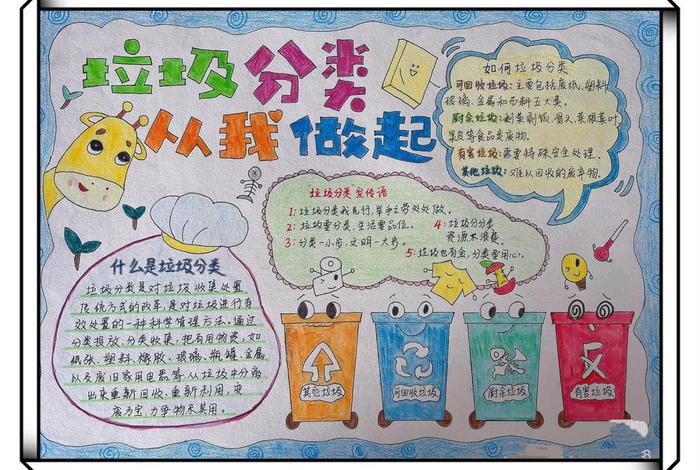 垃圾分类
从我做起
如何垃圾分类
可回收垃圾:主要包括废纸,塑料
玻璃、金属和布料五大类。
厨余垃圾:剩菜剩饭、骨头、菜根菜叶
果皮等食品类废物。
有害垃圾:需要特殊安全处理。
其他垃圾:难以回收的废弃物。
垃圾分类宣传语
1:垃圾分类我先行,举手之劳处处做。
2:垃圾要分类,生活要品位。
3:分类一小步,文明一大步。
4:垃圾分分类
资源不浪费。
5:垃圾也有金,分类要用心。
什么是垃圾分类
垃圾分类是对垃圾收集处置
传统方式的改革,是对垃圾进行有
效处置的一种科学管理方法,通过
分类投放,分类收集,把有用物资,如
纸张、塑料、橡胶、玻璃、瓶罐、金属
以及废旧家用电器等从垃圾中分离
出来重新回收、重新利用,变
废为宝,力争物尽其用。
其他垃圾
可回收垃圾
厨余垃圾
有害垃圾
8